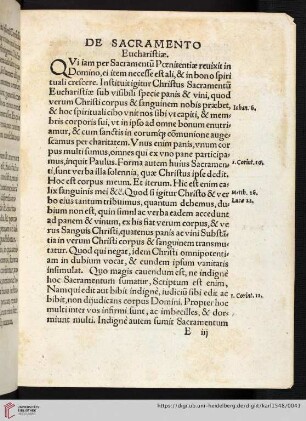 DE SACRAMENTO
Eucharistiæ.
QVi iam per Sacramentũ Pœnitentiæ reuixit in
Domino, ei item necesse est ali, & in bono spiri
tuali crescere. Instituit igitur Christus Sacramentũ
Eucharistiæ sub visibili specie panis & vini, quod
verum Christi corpus & sanguinem nobis præbet,
& hoc spirituali cibo vnit nos sibi vt capiti, & mem
bris corporis sui, vt in ipso ad omne bonum enutri
amur, & cum sanctis in eorumq; cõmunione auge
scamus per charitatem. Vnus enim panis, vnum cor
pus multi sumus, omnes qui ex vno pane participa-
mus, inquit Paulus. Forma autem huius Sacramen-
ti, sunt verba illa solennia, quæ Christus ipse dedit.
Hoc est corpus meum. Et iterum. Hic est enim ca-
lix sanguinis mei &c. Quod si igitur Christo & ver
bo eius tantum tribuimus, quantum debemus, du
bium non est, quin simul ac verba eadem accedunt
ad panem & vinum, ex his fiat verum corpus, & ve
rus Sanguis Christi, quatenus panis ac vini Substã-
tia in verum Christi corpus & sanguinem transmu
tatur. Quod qui negat, idem Christi omnipotenti
am in dubium vocat, & eundem ipsum vanitatis
insimulat. Quo magis cauendum est, ne indignè
hoc Sacramentum sumatur, Scriptum est enim,
Namqui edit aut bibit indignè, iudiciũ sibi edit ac
bibit, non dijudicans corpus Domini. Propter hoc
multi inter vos infirmi sunt, ac imbecilles, & dor-
miunt multi. Indignè autem sumit Sacramentum
E iij
Iohan. 6.
1. Corint. 10.
Matth. 26.
Luce 22.
1. Corint. 11.
https://digi.ub.uni-heidelberg.de/diglit/karl1548/0043
UNIVERSITÄTS-
BIBLIOTHEK
HEIDELBERG